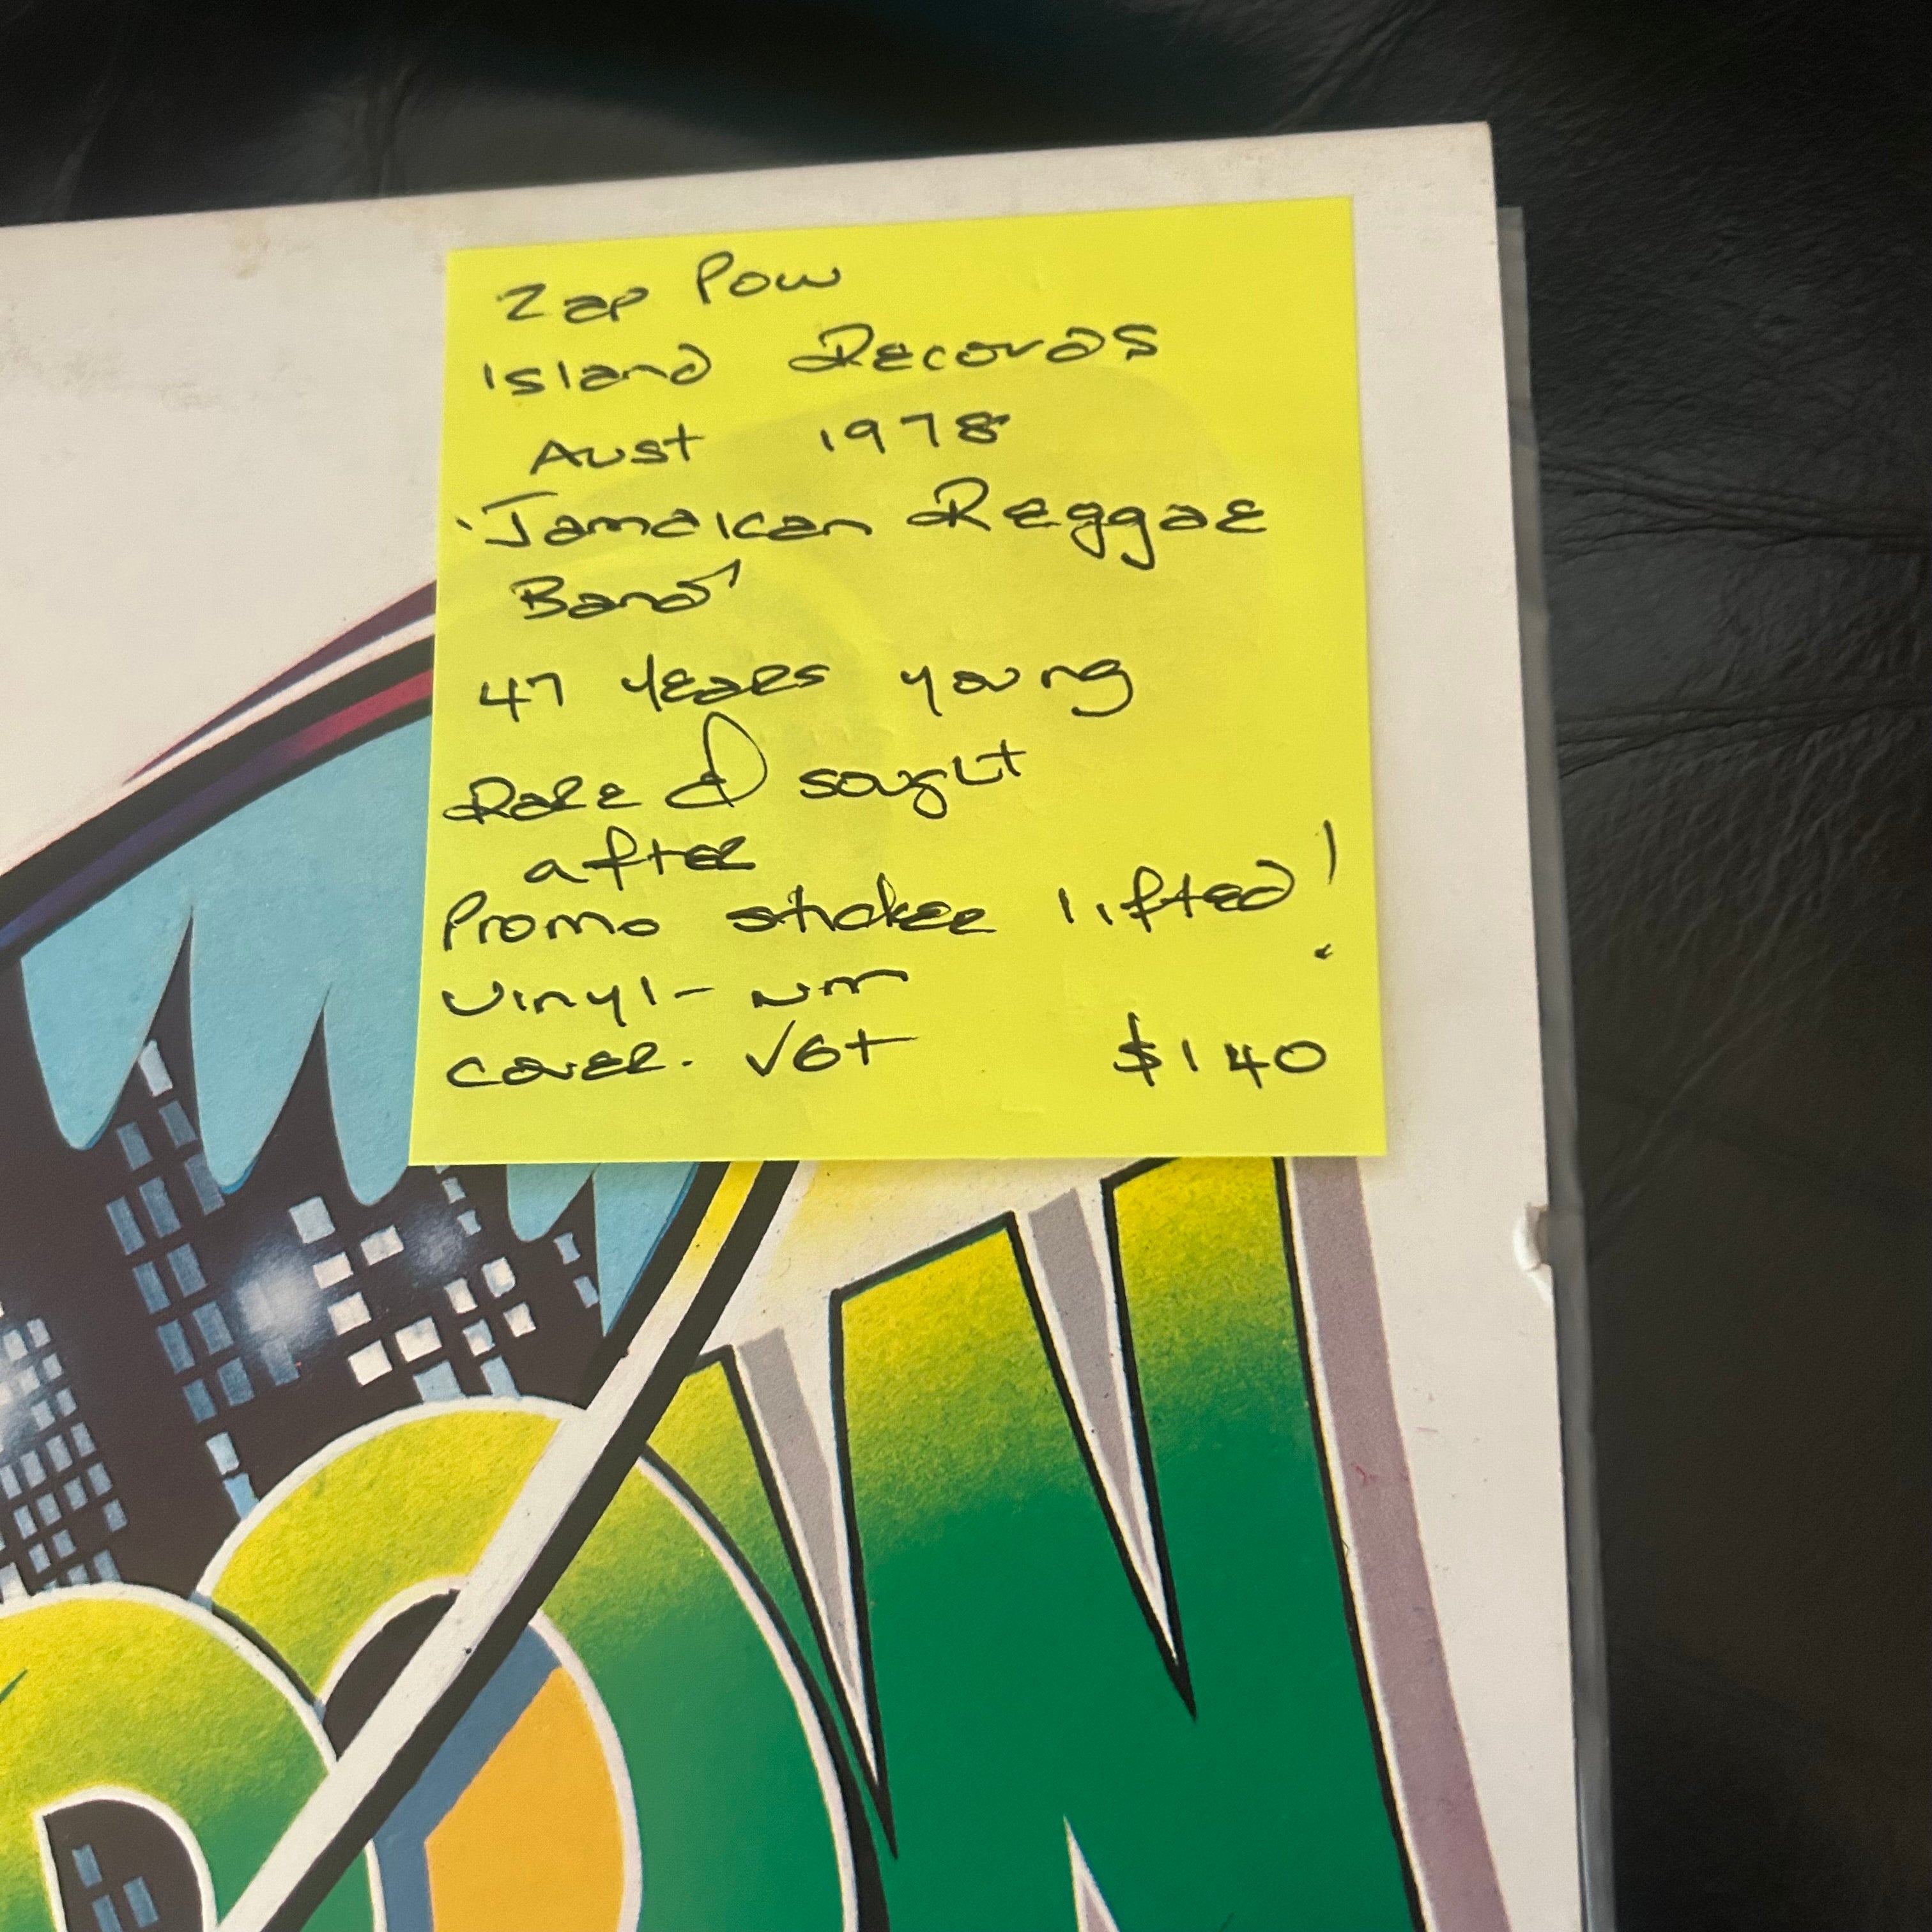 Zap Pow
Island Records
Aust 1978
'Jamaican Reggae
Band'
47 Years young
Rare & sought
after
Promo sticker lifted!
Vinyl - NM
Cover. VG+ $140
POW